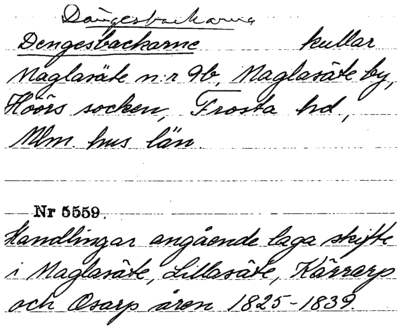 Dängesbackarna
Dengesbackarne kullar
Maglasäte n:r 9b, Maglasäte by,
Höörs socken, Frosta hd,
Mlm. hus län.
Nr 5559.
Handlingar angående laga skifte
i Maglasäte, Lillasäte, Kärrarp
och Osarp åren 1825-1839.